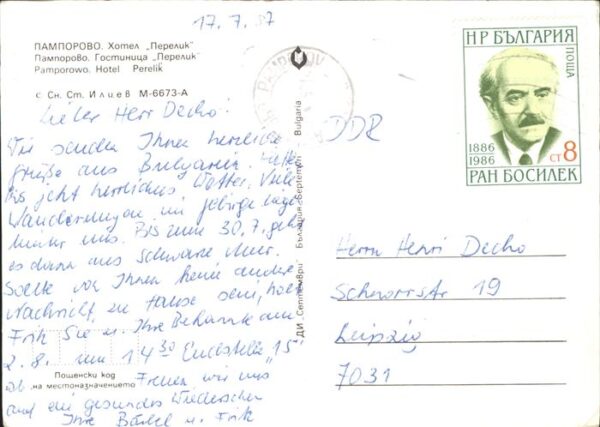 17.7.87
ПАМПОРОВО. Хотел „Перелик"
Пампорово. Гостиница „Перелик"
Pamporowo. Hotel Perelik
с Сн. Ст. Илиев М-6673-А
Lieber Herr Decho!
Wir senden Ihnen herzliche
Grüße aus Bulgarien. Hatten
bis jetzt herrliches Wetter. Viele
Wanderungen im Gebirge liegen
hinter uns. Bis zum 30.7. geht
es dann ans Schwarze Meer.
Sollte von Ihnen keine andere
Nachricht zu Hause sein, holt
Fritz Sie u. Ihre Bekannte am
2.8. um 14 30 Endstelle „15"
ab. Freuen wir uns
auf ein gesundes Wiedersehen
Ihre Bärbel u. Fritz
Пощенски код
на местоназначението
ДИ „Септември" България Septemvri Bulgaria
DDR
НР БЪЛГАРИЯ
ПОЩА
1886
1986
СТ 8
РАН БОСИЛЕК
Herrn Henri Decho
Schwarrstr 19
Leipzig
7031